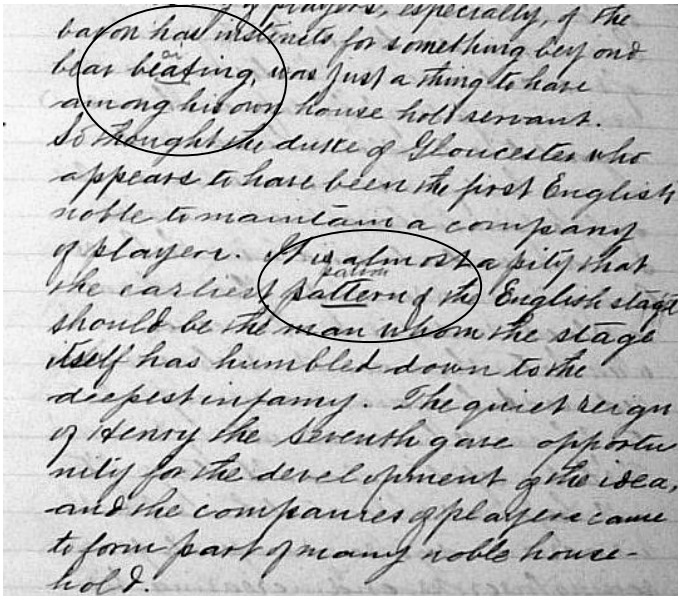 of players, especially, of the
baron has instincts for something beyond
bear beating, was just a thing to have
among his own house hold servant.
So thought the duke of Gloucester who
appears to have been the first English
noble to maintain a company
of players. It is almost a pity that
patron
the earliest pattern of the English stage
should be the man whom the stage
itself has humbled down to the
deepest infamy. The quiet reign
of Henry the Seventh gave opportu
nity for the development of the idea,
and the companies of players came
to form part of many noble house-
hold.